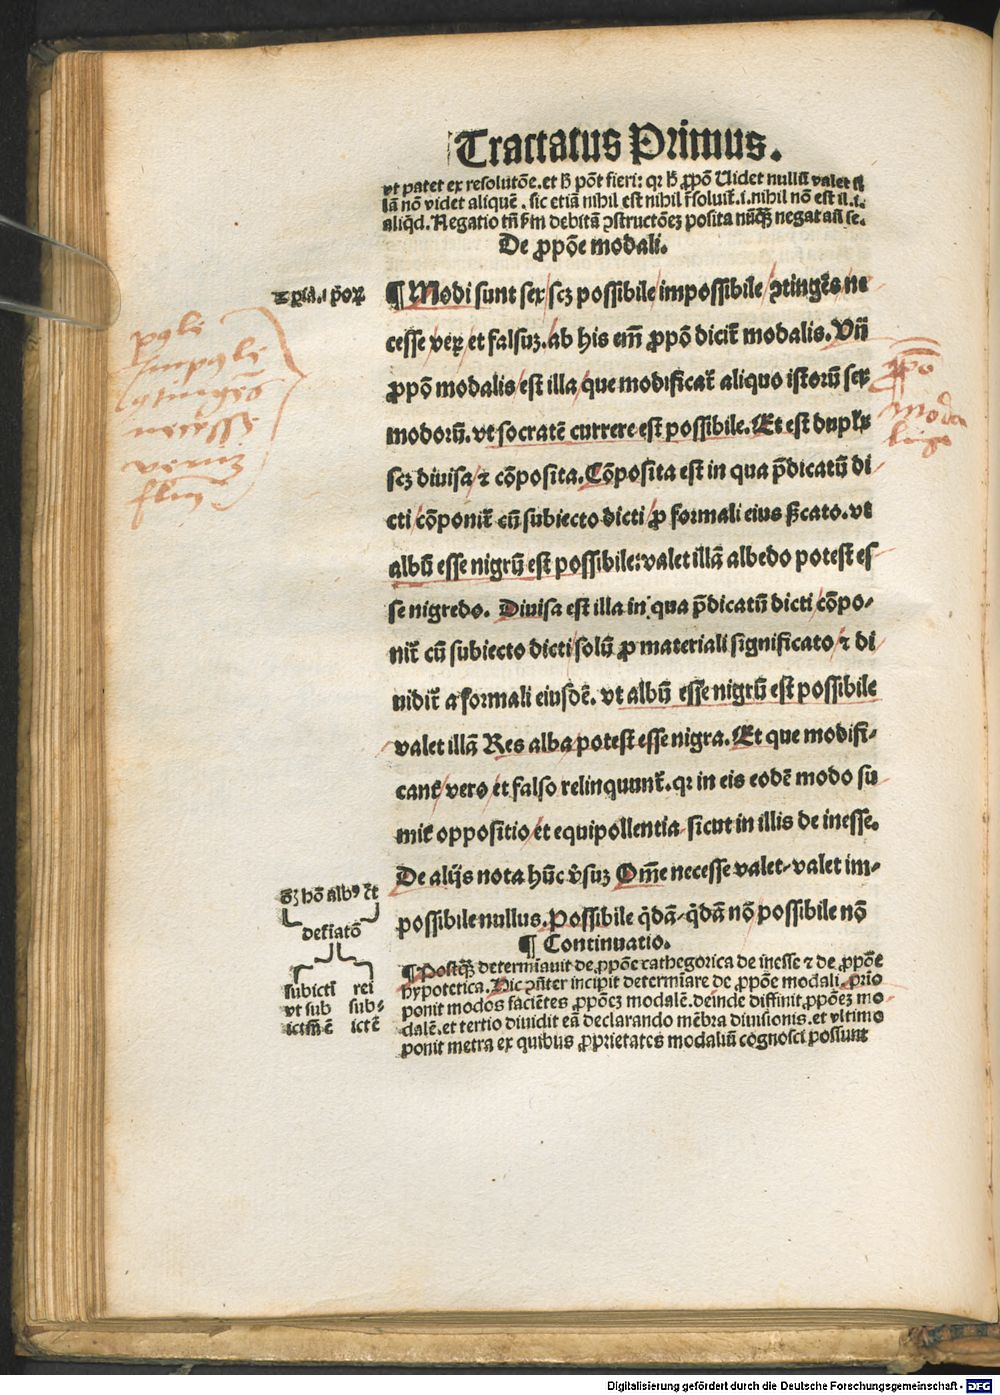 Tractatus Primus.
vt patet ex resolutõe. et h̃ põt fieri: qr h̃ ꝓpõ Uidet nullũ valet il
lã nõ videt aliquẽ. sic etiã nihil est nihil r̃soluit̃. i. nihil nõ est il. i.
aliq̃d. Negatio tñ debitã ↄstructõeꝫ posita nũq̃ꝫ negat añ se.
De ꝓpõe modali.
¶ Modi sunt sex scꝫ possibile impossibile ↄtingẽs ne
cesse veꝝ et falsuꝫ. ab his em̃ ꝓpõ dicit̃ modalis. Vñ
ꝓpõ modalis est illa que modificat̃ aliquo istorũ sex
modorũ. vt socratẽ currere est possibile. Et est duplx
scꝫ diuisa ⁊ cõposita. Cõposita est in qua p̃dicatũ di-
cti cõponit̃ cũ subiecto dicti ꝓ formali eius sc̃ato. vt
albũ esse nigrũ est possibile: valet illã albedo potest es
se nigredo. Diuisa est illa in qua p̃dicatũ dicti cõpo-
nit̃ cũ subiecto dicti solũ ꝓ materiali significato ⁊ di
uidit̃ a formali eiusdẽ. vt albũ esse nigrũ est possibile
valet illã Res alba potest esse nigra. Et que modifi-
cant̃ vero et falso relinquunt̃. qr in eis eodẽ modo su
mit̃ oppositio et equipollentia sicut in illis de inesse.
De alijs nota hũc v̓suꝫ Om̃e necesse valet-valet im-
possibile nullus. Possibile q̃dã-q̃dã nõ possibile nõ
¶ Continuatio.
¶ Postq̃ꝫ determĩauit de ꝓpõe cathegorica de inesse ⁊ de ꝓpõe
hypotetica. Hic ↄñter incipit determĩare de ꝓpõe modali. prĩo
ponit modos faciẽtes ꝓpõeꝫ modalẽ. deinde diffinit ꝓpõeꝫ mo
dalẽ. et tertio diuidit eã declarando mẽbra diuisionis. et vltimo
ponit metra ex quibus ꝓprietates modaliũ cognosci possunt
õꝫ hõ albꝰ c̃t
det̃iatõ
subictĩ rei
vt sub sub-
ictũ ẽ ictẽ
ꝓpõ
moda
lis